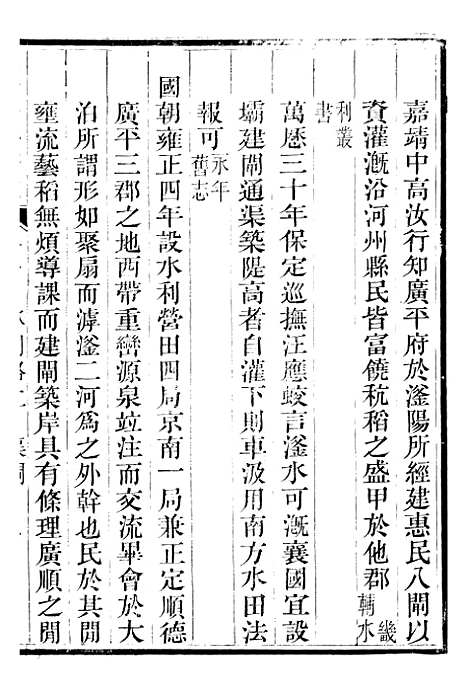 嘉靖中高汝行知廣平府於滏陽所經建惠民八閘以
資灌漑沿河州縣民皆富饒秔稻之盛甲於他郡畿輔水
利叢書
萬厯三十年保定巡撫汪應蛟言滏水可漑襄國宜設
壩建閘通渠築隄高者自灌下則車汲用南方水田法
報可永年舊志
國朝雍正四年設水利營田四局京南一局兼正定順德
廣平三郡之地西帶重巒源泉竝注而交流畢會於大
泊所謂形如聚扇而滹滏二河爲之外幹也民於其閒
雍流藝稻無煩導課而建閘築岸具有條理廣順之閒